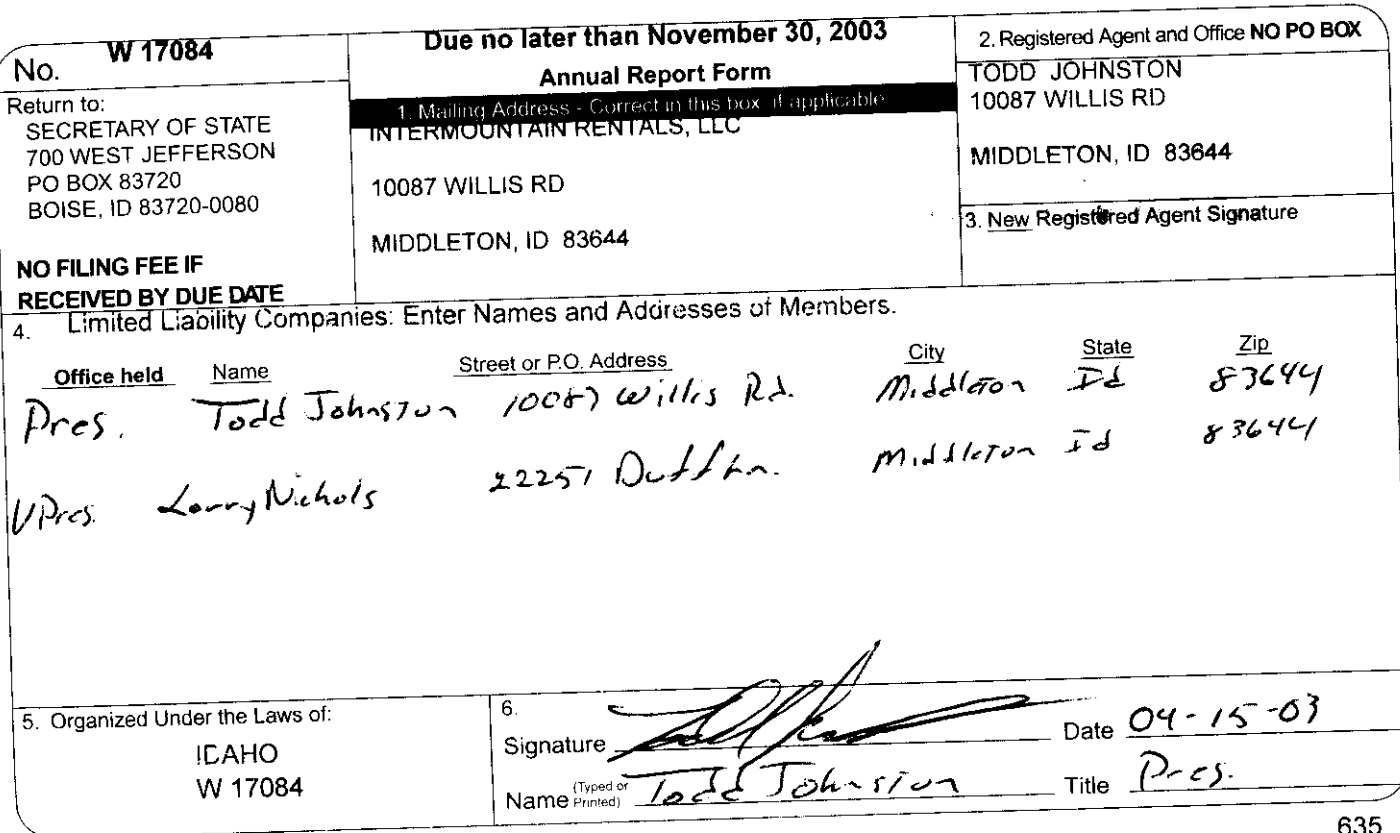 No. W 17084
Return to:
SECRETARY OF STATE
700 WEST JEFFERSON
PO BOX 83720
BOISE, ID 83720-0080
NO FILING FEE IF
RECEIVED BY DUE DATE
Due no later than November 30, 2003
Annual Report Form
1. Mailing Address - Correct in this box, if applicable
INTERMOUNTAIN RENTALS, LLC
10087 WILLIS RD
MIDDLETON, ID 83644
2. Registered Agent and Office NO PO BOX
TODD JOHNSTON
10087 WILLIS RD
MIDDLETON, ID 83644
3. New Registered Agent Signature
4. Limited Liability Companies: Enter Names and Addresses of Members.
Office held Name Street or P.O. Address City State Zip
Pres. Todd Johnston 10087 Willis Rd. Middleton Id 83644
VPres. Larry Nichols 22251 Duff Ln. Middleton Id 83644
5. Organized Under the Laws of:
IDAHO
W 17084
6.
Signature Date 04-15-03
Name (Typed or Printed) Todd Johnston Title Pres.
635